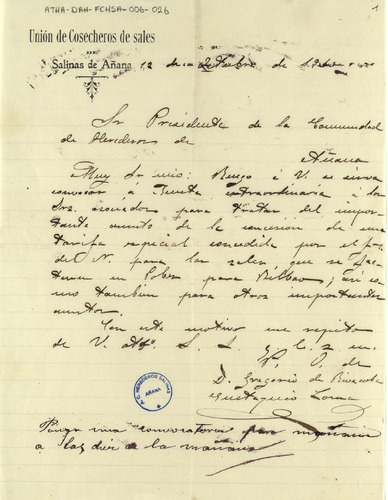 ATHA-DAH-FCHSA-006-026
1
Unión de Cosecheros de sales
DE
Salinas de Añana 12 de Octubre de
Sr Presidente de la Comunidad
de Herederos de
Añana
Muy Sr mio: Ruego á V. se sirva
convocar á Junta extraordinaria á los
Srs. asociados para tratar del impor
tante asunto de la concesion de una
tarifa especial concedida por el
del N. para las sales que se fac
turen en Pobes para Bilbao; así co
mo tambien para otros importantes
asuntos.
Con este motivo me repito
de V. atto. S. S. q. b. s. m.
P. O. de
D. Gregorio de
Eustaquio
A.C. HEREDEROS SALINAS
AÑANA
Ponga una convocatoria para mañana
a las diez de la mañana